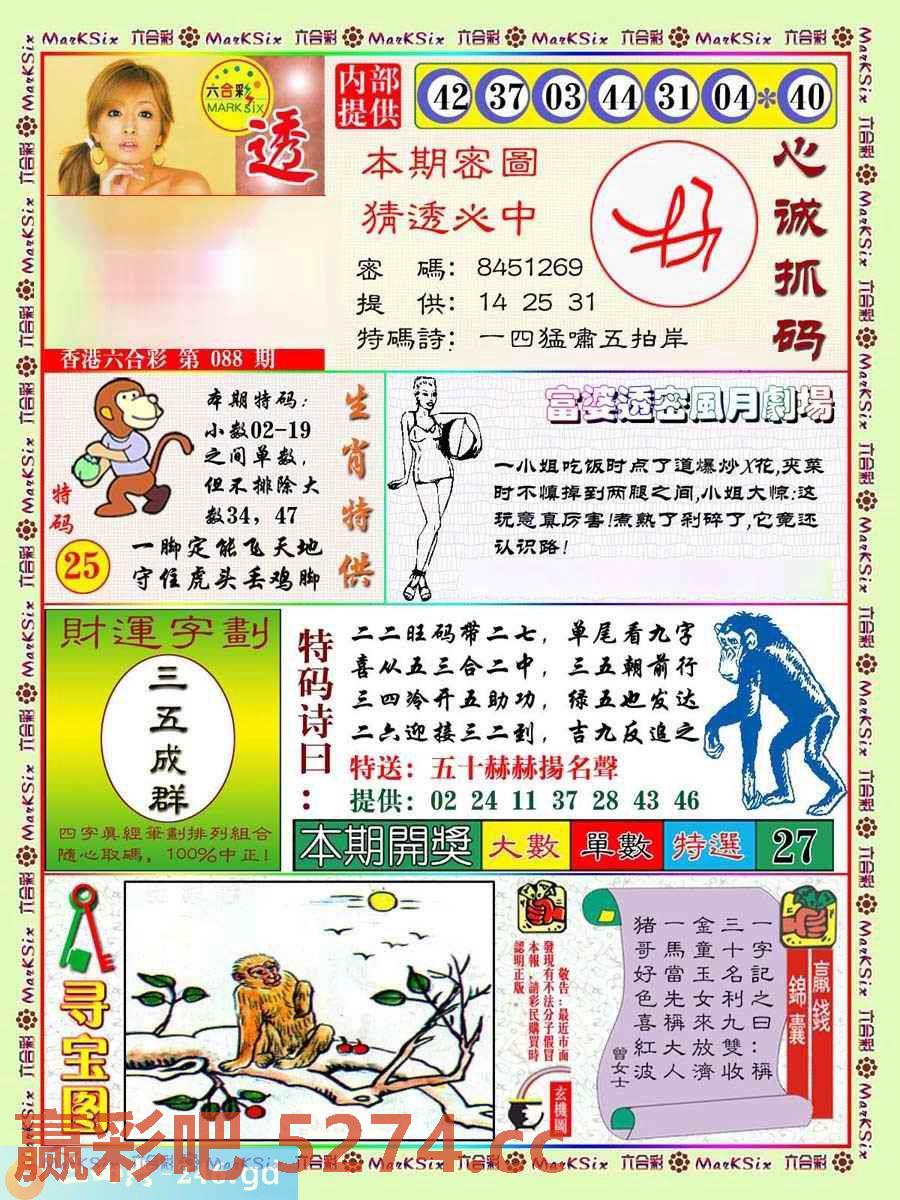 MarKSix 六合彩 MarKSix 六合彩 MarKSix 六合彩 MarKSix 六合彩 MarKSix 六合彩
六合彩
MARK SIX
透
内部
提供
42 37 03 44 31 04 * 40
本期密圖
猜透必中
密 碼: 8451269
提 供: 14 25 31
特碼詩: 一四猛嘯五拍岸
心诚抓码
香港六合彩 第 088 期
本期特码:
小数02-19
之间单数,
但不排除大
数34, 47
一脚定能飞天地
守住虎头丢鸡脚
特码
25
生肖特供
富婆透密風月劇場
一小姐吃饭时点了道爆炒X花,夹菜
时不慎掉到两腿之间,小姐大惊:这
玩意真厉害!煮熟了剁碎了,它竟还
认识路!
財運字劃
三五成群
四字真經筆劃排列組合
隨心取碼, 100%中正!
特码诗曰:
二二旺码带二七, 单尾看九字
喜从五三合二中, 三五朝前行
三四冷开五助功, 绿五也发达
二六迎接三二到, 吉九反追之
特送: 五十赫赫揚名聲
提供: 02 24 11 37 28 43 46
本期開獎 大數 單數 特選 27
寻宝图
敬告:最近市面
發現有不法分子假冒
本報,請彩民購買時
認明正版。
玄機圖
一字記之曰:稱
三十名利九雙收
金童玉女來放濟
一馬當先稱大人
猪哥好色喜紅波
曾女士
贏錢
錦囊
赢彩吧 5274.cc
MarKSix 六合彩 MarKSix 六合彩 MarKSix 六合彩 MarKSix 六合彩